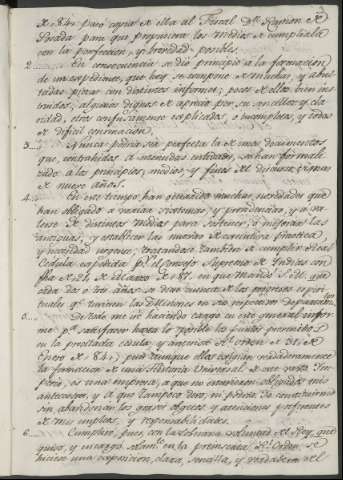 de 84,, pasó copia de ella al Fiscal Dn. Ramon de
Posada para que propusiera los medios de cumplirla
con la perfeccion, y brevedad posibles.
2.. En consecuencia se dió principio á la formacion
de un expediente, que hoy se compone de muchas, y abul
tadas piezas con distintos informes; pocos de ellos bien ins
truidos; algunos dignos de aprecio por su sencillez y cla
ridad; otros confusamente explicados, o incompletos, y todos
de dificil convinacion.
3.. Nunca podria ser perfecta la de unos documentos
que, contrahidos á intendidas se han formali
zado á los principios, medios, y fines del discurso de mas
de nueve años.
4.. En este tiempo han ocurrido muchas novedades que
han obligado á variar sistemas, y providencias, y á va
lerse de distintos medios para sostener, ó mejorar las
antiguas, y establecer las nuevas de
y novedad; tratandose tambien de cumplir Real
Cedula expedida pr. el Consejo Supremo de Indias con
fha de 21 de Marzo de 87. en que manda S. M. que
cada dos ó tres años se dé cuenta de los progresos espiri
tuales qe. tuvieren las Misiones en sus respectivos Departamtos.
5.. De todo me iré haciendo cargo en este general infor
me pa. satisfacer hasta lo posible los puntos prevenidos
en la precitada cedula, y anterior Rl. orden de 31 de
Enero de 84,, pues aunque ellas exigian verdaderamente
la formacion de una Historia Universal de este vasto Im
perio, es una empresa, á que no estuvieron obligados mis
antecesor, y á que tampoco devo, ni podria Yo constituirme
sin abandonar los graves objetos y atenciones preferentes
de mis empleos, y responsabilidades.
6.. Cumpliré, pues, con la soberana voluntad del Rey, que
quiso, y encargó solamte. en la preinserta Rl. Orden, se
hiciese una exposicion, clara, sencilla, y verdadera del